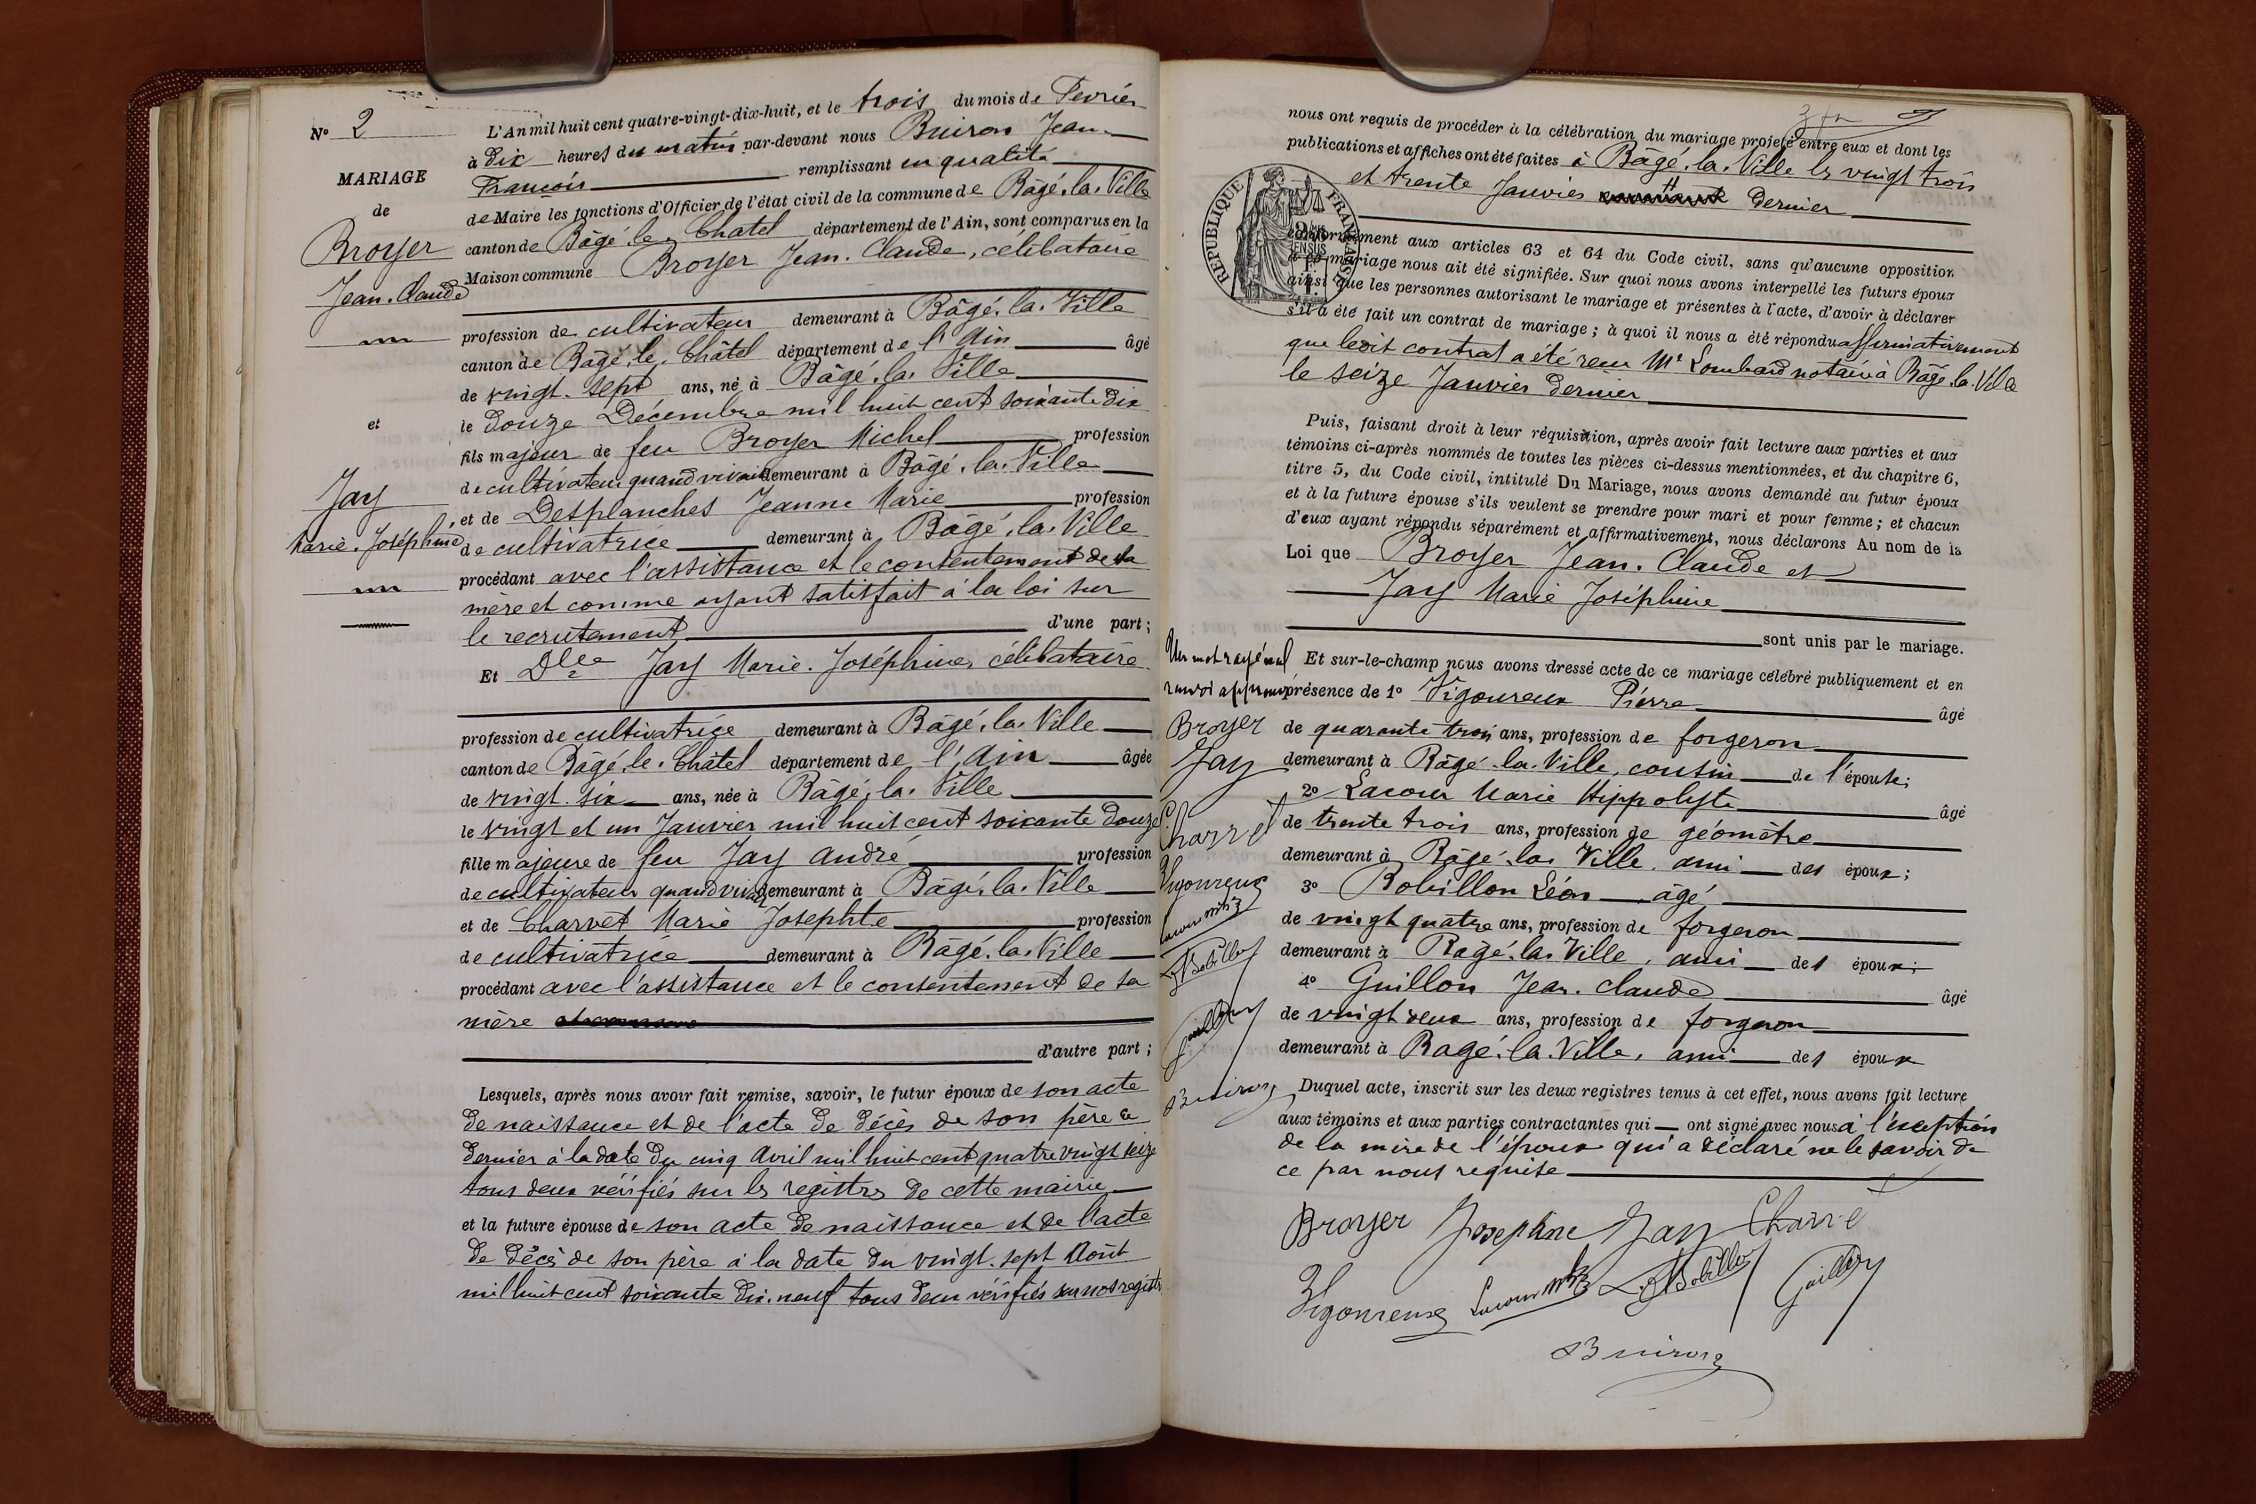 N° 2
MARIAGE
de
Broyer
Jean-Claude
et
Jay
Marie-Joséphine
L'An mil huit cent quatre-vingt-dix-huit, et le trois du mois de Fevrier
à dix heures du matin par-devant nous Buiron Jean-
François remplissant en qualité
de Maire les fonctions d'Officier de l'état civil de la commune de Bâgé-la-Ville
canton de Bâgé-le-Châtel département de l'Ain, sont comparus en la
Maison commune Broyer Jean-Claude, célibataire
profession de cultivateur demeurant à Bâgé-la-Ville
canton de Bâgé-le-Châtel département de l'Ain âgé
de vingt-sept ans, né à Bâgé-la-Ville
le douze Décembre mil huit cent soixante dix
fils majeur de feu Broyer Michel profession
de cultivateur quand vivait demeurant à Bâgé-la-Ville
et de Desplanches Jeanne Marie profession
de cultivatrice demeurant à Bâgé-la-Ville
procédant avec l'assistance et le consentement de sa
mère et comme ayant satisfait à la loi sur
le recrutement d'une part ;
Et Dlle Jay Marie-Joséphine, célibataire
profession de cultivatrice demeurant à Bâgé-la-Ville
canton de Bâgé-le-Châtel département de l'Ain âgée
de vingt-six ans, née à Bâgé-la-Ville
le vingt et un Janvier mil huit cent soixante douze
fille majeure de feu Jay André profession
de cultivateur quand vivait demeurant à Bâgé-la-Ville
et de Charvet Marie Josephte profession
de cultivatrice demeurant à Bâgé-la-Ville
procédant avec l'assistance et le consentement de sa
mère
d'autre part ;
Lesquels, après nous avoir fait remise, savoir, le futur époux de son acte
de naissance et de l'acte de décès de son père ce
dernier à la date du cinq Avril mil huit cent quatre vingt seize
tous deux vérifiés sur les registres de cette mairie
et la future épouse de son acte de naissance et de l'acte
de décès de son père à la date du vingt-sept Août
mil huit cent soixante dix-neuf tous deux vérifiés sur nos registres
nous ont requis de procéder à la célébration du mariage projeté entre eux et dont les
publications et affiches ont été faites à Bâgé-la-Ville les vingt trois
et trente Janvier dernier
conformément aux articles 63 et 64 du Code civil, sans qu'aucune opposition
à ce mariage nous ait été signifiée. Sur quoi nous avons interpellé les futurs époux
ainsi que les personnes autorisant le mariage et présentes à l'acte, d'avoir à déclarer
s'il a été fait un contrat de mariage ; à quoi il nous a été répondu affirmativement
que ledit contrat a été reçu Me Lombard notaire à Bâgé-la-Ville
le seize Janvier dernier
RÉPUBLIQUE FRANÇAISE
Puis, faisant droit à leur réquisition, après avoir fait lecture aux parties et aux
témoins ci-après nommés de toutes les pièces ci-dessus mentionnées, et du chapitre 6,
titre 5, du Code civil, intitulé Du Mariage, nous avons demandé au futur époux
et à la future épouse s'ils veulent se prendre pour mari et pour femme ; et chacun
d'eux ayant répondu séparément et affirmativement, nous déclarons Au nom de la
Loi que Broyer Jean-Claude et
Jay Marie Joséphine
sont unis par le mariage.
Et sur-le-champ nous avons dressé acte de ce mariage célébré publiquement et en
présence de 1° Vigoureux Pierre âgé
de quarante trois ans, profession de forgeron
demeurant à Bâgé-la-Ville, cousin de l'épouse ;
2° Lacour Marie Hippolyte âgé
de trente trois ans, profession de géomètre
demeurant à Bâgé-la-Ville, ami des époux ;
3° Robillon Léon âgé
de vingt quatre ans, profession de forgeron
demeurant à Bâgé-la-Ville, ami des époux ;
4° Guillon Jean-Claude âgé
de vingt deux ans, profession de forgeron
demeurant à Bagé-la-Ville, ami des époux
Duquel acte, inscrit sur les deux registres tenus à cet effet, nous avons fait lecture
aux témoins et aux parties contractantes qui ont signé avec nous à l'exception
de la mère de l'époux qui a déclaré ne le savoir de
ce par nous requise
Un mot rayé nul
renvoi approuvé
Broyer
Jay
Vigoureux
Buiron
Broyer Joséphine Jay
Vigoureux Robillon Guillon
Buiron